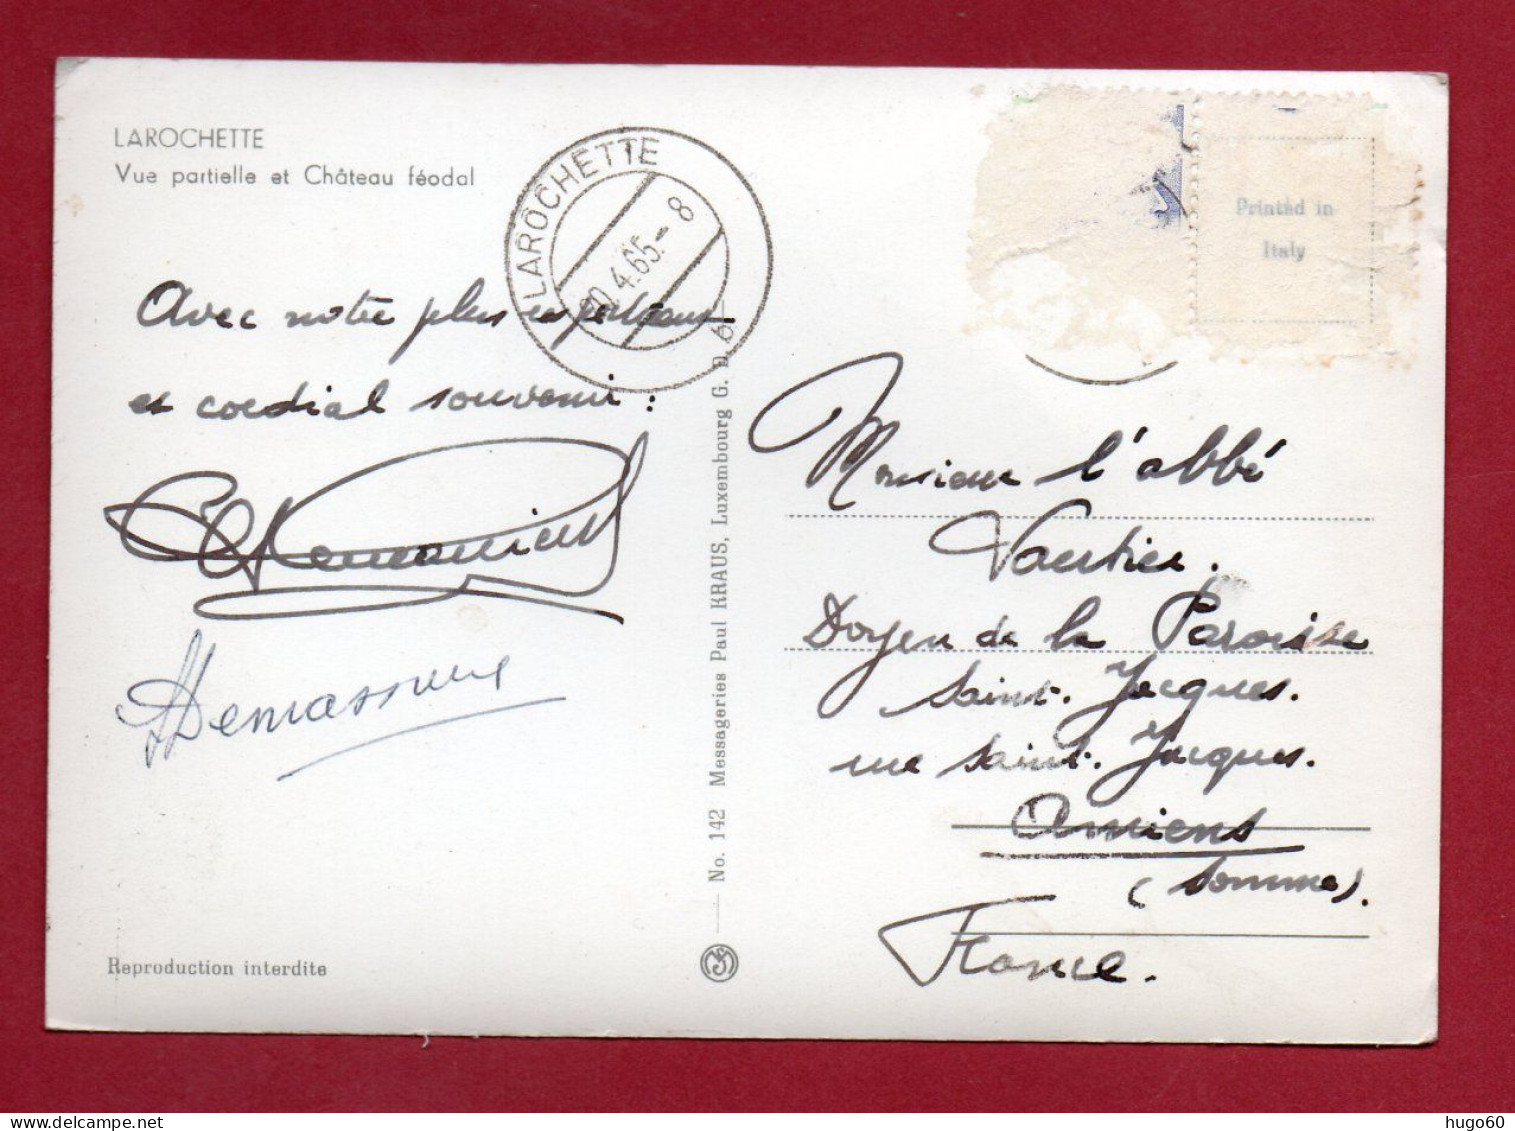 LAROCHETTE
Vue partielle et Château féodal
LAROCHETTE
20.4.65.-8
Printed in
Italy
Avec notre plus respectueux
et cordial souvenir :
Demassieux
Monsieur l'abbé
Vautier.
Doyen de la Paroisse
Saint. Jacques.
rue Saint. Jacques.
Amiens
(Somme).
France.
No. 142 Messageries Paul KRAUS, Luxembourg G. D.
Reproduction interdite
hugo60